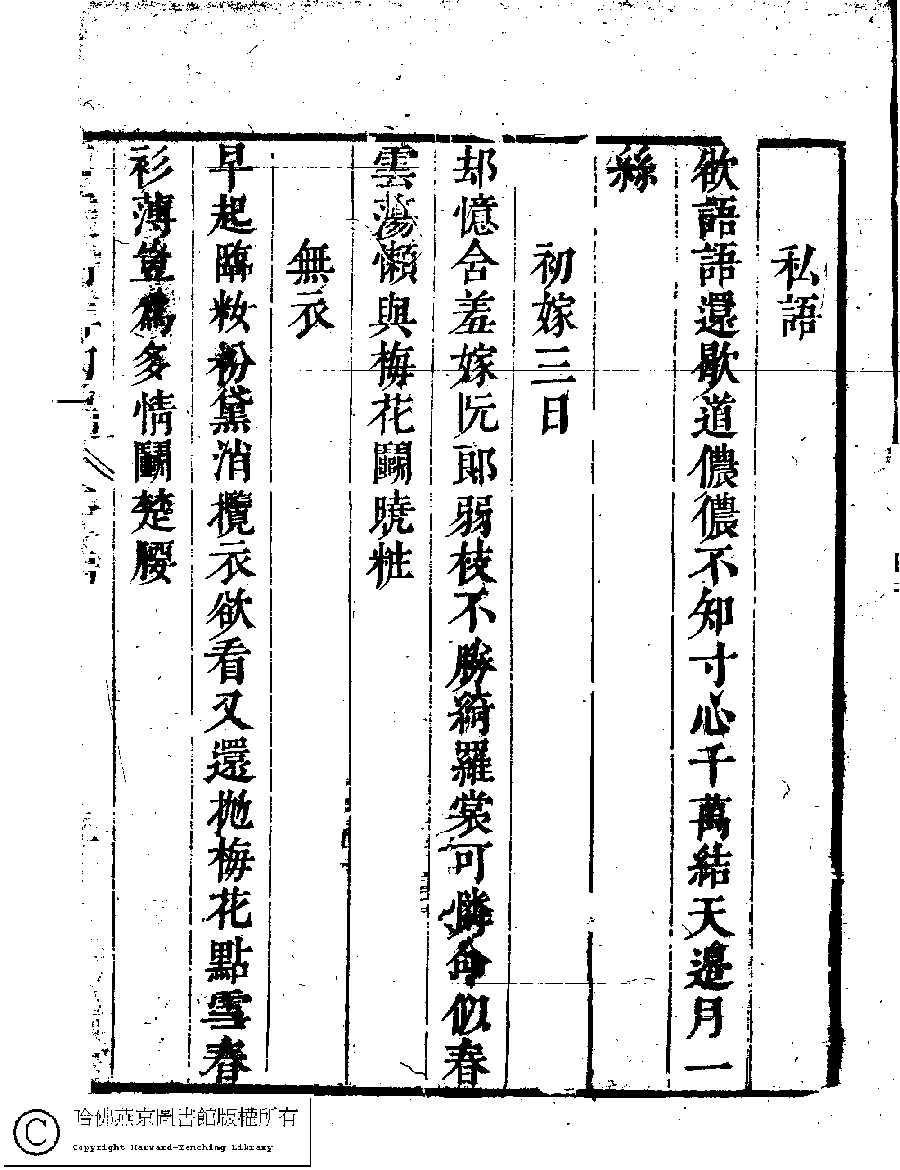 私語
欲語語還歇道儂儂不知寸心千萬結天邉月一
絲
初嫁三日
却憶含羞嫁阮郎弱枝不勝綺羅裳可憐命似春
雲蕩懶與梅花鬭曉粧
無衣
早起臨妝粉黛消攬衣欲看又還抛梅花點雪春
衫薄豈為多情鬭楚腰
哈佛燕京圖書館版權所有
Copyright Harvard-Yenching Library